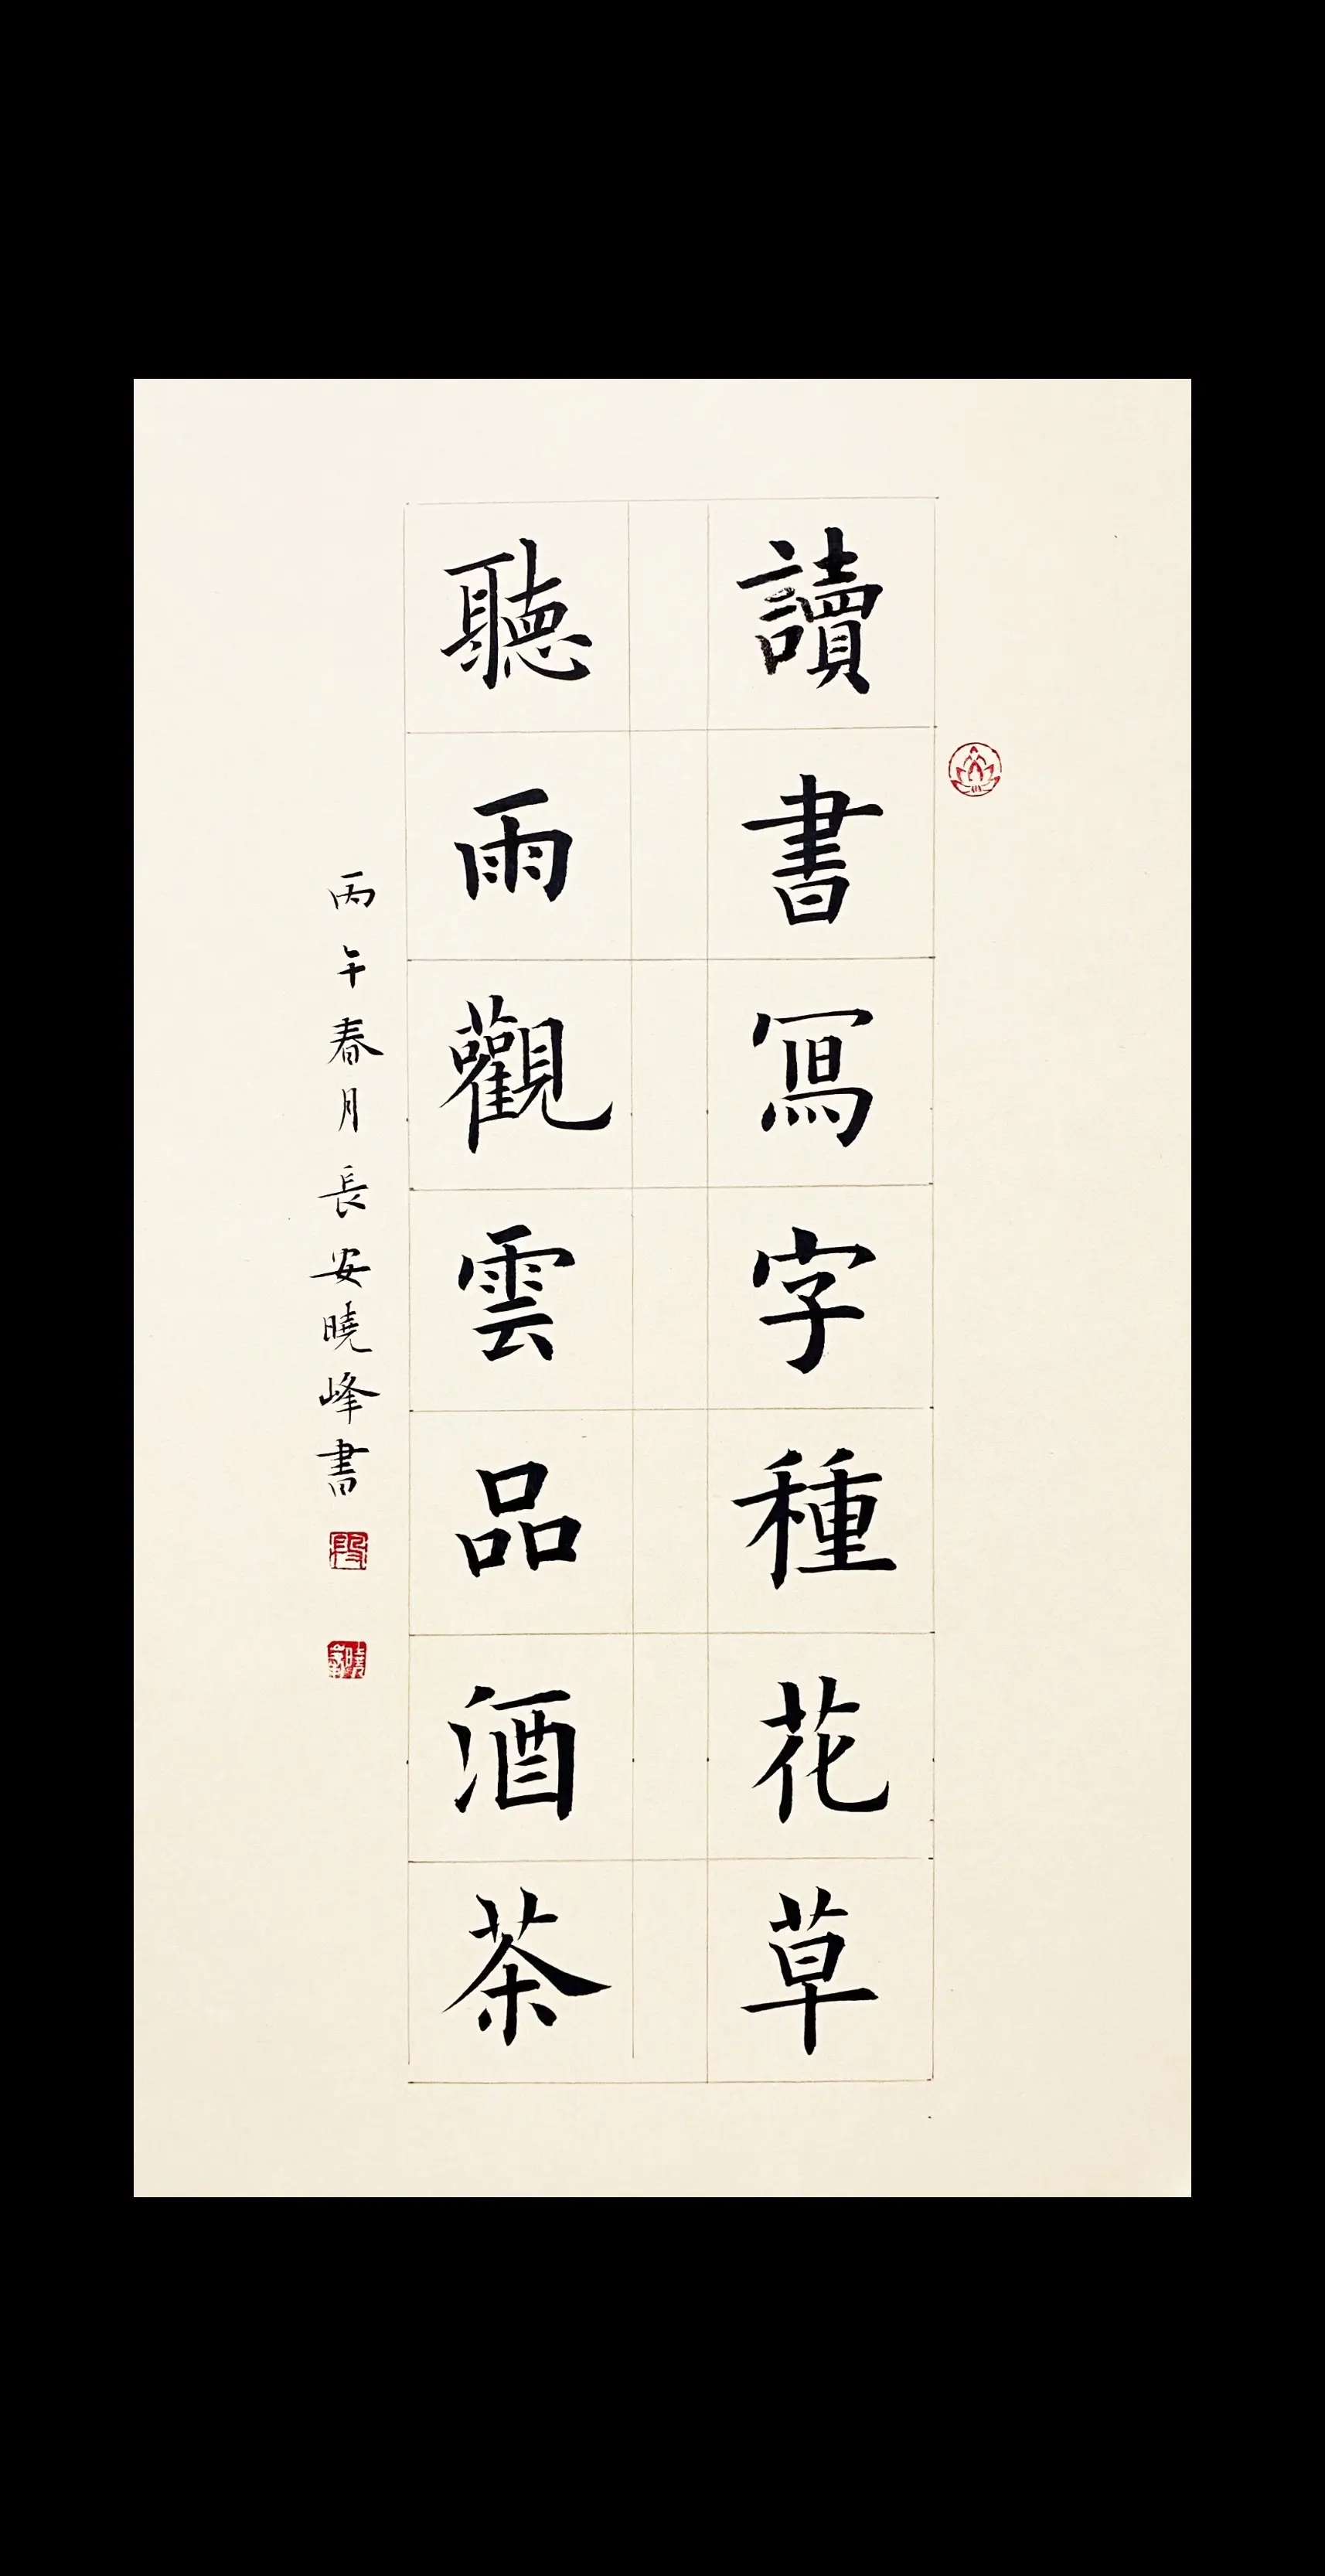 讀書寫字種花草
聽雨觀雲品酒茶
丙午春月長安曉峰書
段
曉峰